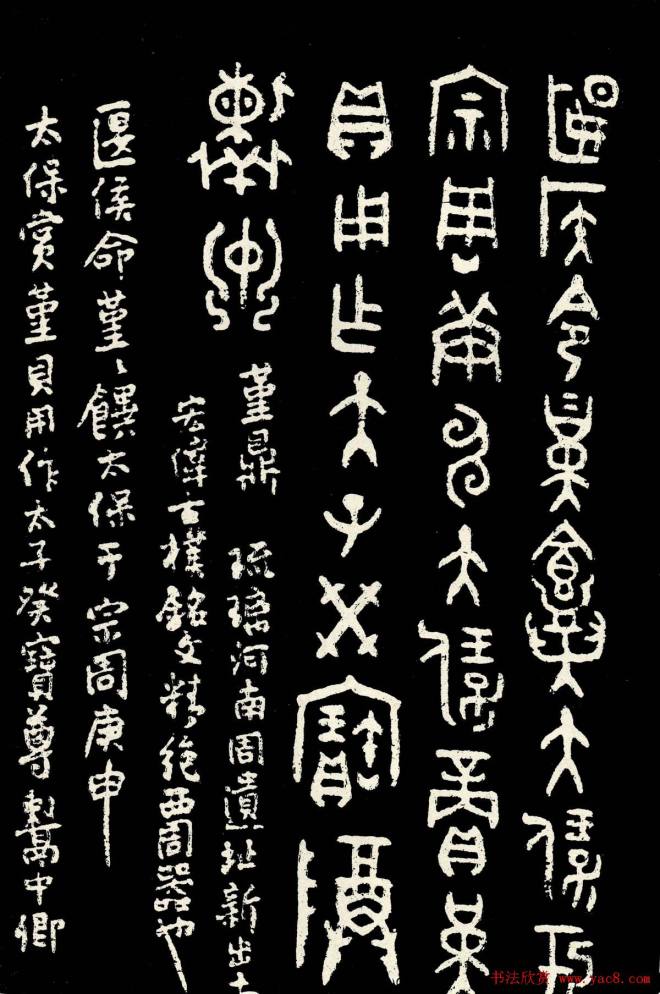 匽侯令堇饎大保于
宗周庚申大保賞堇
貝用乍大子癸寶
堇鼎 琉璃河南周遺址新出土
宏偉古樸銘文精絕西周器也
匽侯命堇〻饌太保于宗周庚申
太保賞堇貝用作太子癸寶尊中卿
书法欣赏 www.yac8.com